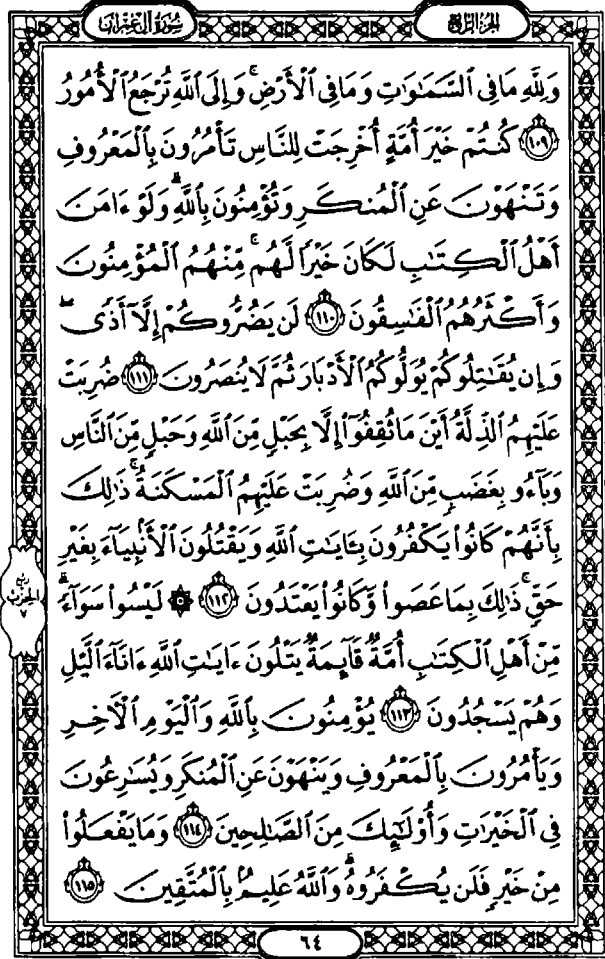 سُورَةُ آلِ عِمْرَان
الجُزْءُ الرَّابِعُ
وَلِلَّهِ مَا فِى ٱلسَّمَـٰوَٰتِ وَمَا فِى ٱلْأَرْضِ ۚ وَإِلَى ٱللَّهِ تُرْجَعُ ٱلْأُمُورُ
١٠٩ كُنتُمْ خَيْرَ أُمَّةٍ أُخْرِجَتْ لِلنَّاسِ تَأْمُرُونَ بِٱلْمَعْرُوفِ
وَتَنْهَوْنَ عَنِ ٱلْمُنكَرِ وَتُؤْمِنُونَ بِٱللَّهِ ۗ وَلَوْ ءَامَنَ
أَهْلُ ٱلْكِتَـٰبِ لَكَانَ خَيْرًا لَّهُم ۚ مِّنْهُمُ ٱلْمُؤْمِنُونَ
وَأَكْثَرُهُمُ ٱلْفَـٰسِقُونَ ١١٠ لَن يَضُرُّوكُمْ إِلَّآ أَذًى ۖ
وَإِن يُقَـٰتِلُوكُمْ يُوَلُّوكُمُ ٱلْأَدْبَارَ ثُمَّ لَا يُنصَرُونَ ١١١ ضُرِبَتْ
عَلَيْهِمُ ٱلذِّلَّةُ أَيْنَ مَا ثُقِفُوٓا۟ إِلَّا بِحَبْلٍ مِّنَ ٱللَّهِ وَحَبْلٍ مِّنَ ٱلنَّاسِ
وَبَآءُو بِغَضَبٍ مِّنَ ٱللَّهِ وَضُرِبَتْ عَلَيْهِمُ ٱلْمَسْكَنَةُ ۚ ذَٰلِكَ
بِأَنَّهُمْ كَانُوا۟ يَكْفُرُونَ بِـَٔايَـٰتِ ٱللَّهِ وَيَقْتُلُونَ ٱلْأَنۢبِيَآءَ بِغَيْرِ
حَقٍّ ۚ ذَٰلِكَ بِمَا عَصَوا۟ وَّكَانُوا۟ يَعْتَدُونَ ١١٢ ۞ لَيْسُوا۟ سَوَآءً ۗ
مِّنْ أَهْلِ ٱلْكِتَـٰبِ أُمَّةٌ قَآئِمَةٌ يَتْلُونَ ءَايَـٰتِ ٱللَّهِ ءَانَآءَ ٱلَّيْلِ
وَهُمْ يَسْجُدُونَ ١١٣ يُؤْمِنُونَ بِٱللَّهِ وَٱلْيَوْمِ ٱلْـَٔاخِرِ
وَيَأْمُرُونَ بِٱلْمَعْرُوفِ وَيَنْهَوْنَ عَنِ ٱلْمُنكَرِ وَيُسَـٰرِعُونَ
فِى ٱلْخَيْرَٰتِ وَأُو۟لَـٰٓئِكَ مِنَ ٱلصَّـٰلِحِينَ ١١٤ وَمَا يَفْعَلُوا۟
مِنْ خَيْرٍ فَلَن يُكْفَرُوهُ ۗ وَٱللَّهُ عَلِيمٌۢ بِٱلْمُتَّقِينَ ١١٥
ربع
الحزب
٧
٦٤